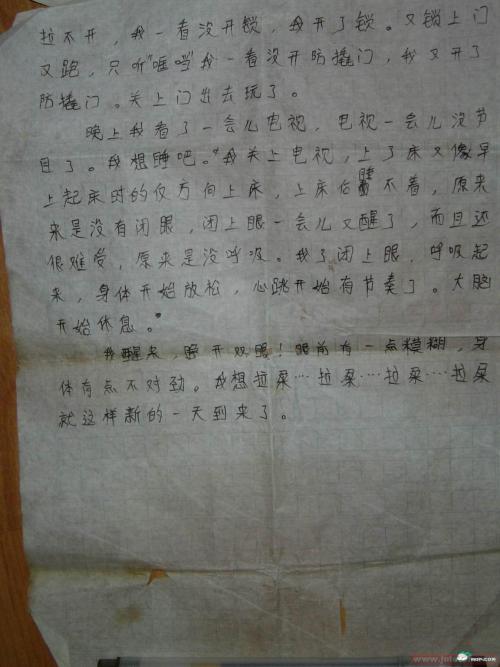 拉不开，我一看没开锁，我开了锁。又锁上门
又跑，只听"哐当"我一看没开防撬门，我又开了
防撬门。关上门出去玩了。
晚上我看了一会儿电视，电视一会儿没节
目了。我想睡吧。我关上电视，上了床又像早
上起床时的仅方向上床，上床后睡不着，原来
来是没有闭眼，闭上眼一会儿又醒了，而且还
很难受，原来是没呼吸。我了闭上眼，呼吸起
来，身体开始放松，心跳开始有节奏了。大脑
开始休息。
我醒来，睁开双眼！眼前有一点模糊，身
体有点不对劲。我想拉屎····拉屎····拉屎····拉屎
就这样新的一天到来了。